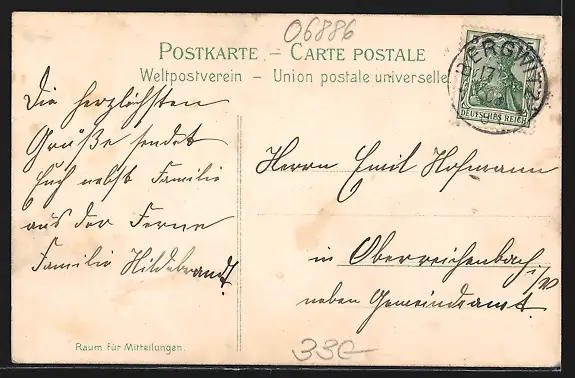 06886
POSTKARTE – CARTE POSTALE
Weltpostverein – Union postale universelle
BERGWITZ
17
DEUTSCHES REICH
Die herzlichsten
Grüße sendet
Euch nebst Familie
aus der Ferne
Familie Hildebrandt.
Herrn Emil Hofmann
in Oberreichenbach i/V
neben Gemeindeamt.
Raum für Mitteilungen.